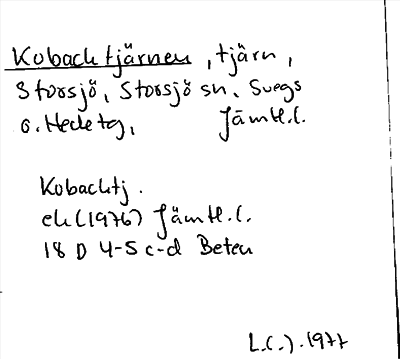 Kobachtjärnen, tjärn,
Storsjö, Storsjö sn, Svegs
o. Hede tg, Jämtl.l.
Kobachtj.
ek (1976) Jämtl.l.
18 D 4-5 c-d Beten
L.(.). 1977